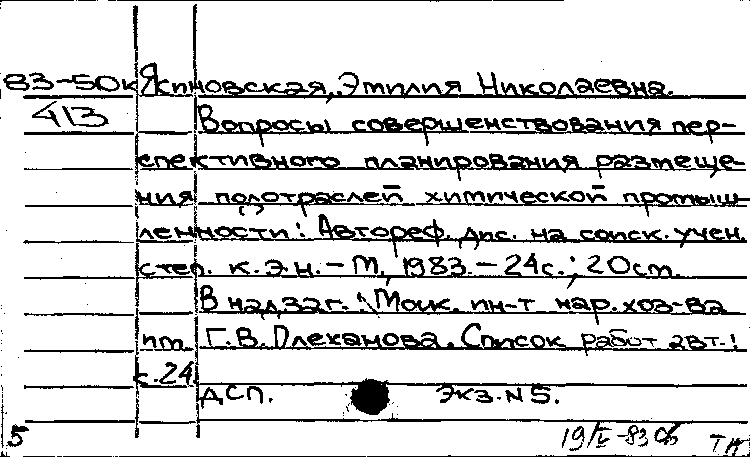 83-50к Ясиновская, Эмилия Николаевна.
413 Вопросы совершенствования пер-
спективного планирования размеще-
ния подотраслей химической промыш-
ленности: Автореф. дис. на соиск. учен.
степ. к.э.н. - М, 1983. - 24с.; 20см.
В надзаг.: Моск. ин-т нар. хоз-ва
им. Г.В. Плеханова. Список работ авт.:
с.24
ДСП. Экз. N 5.
5 19/V-83